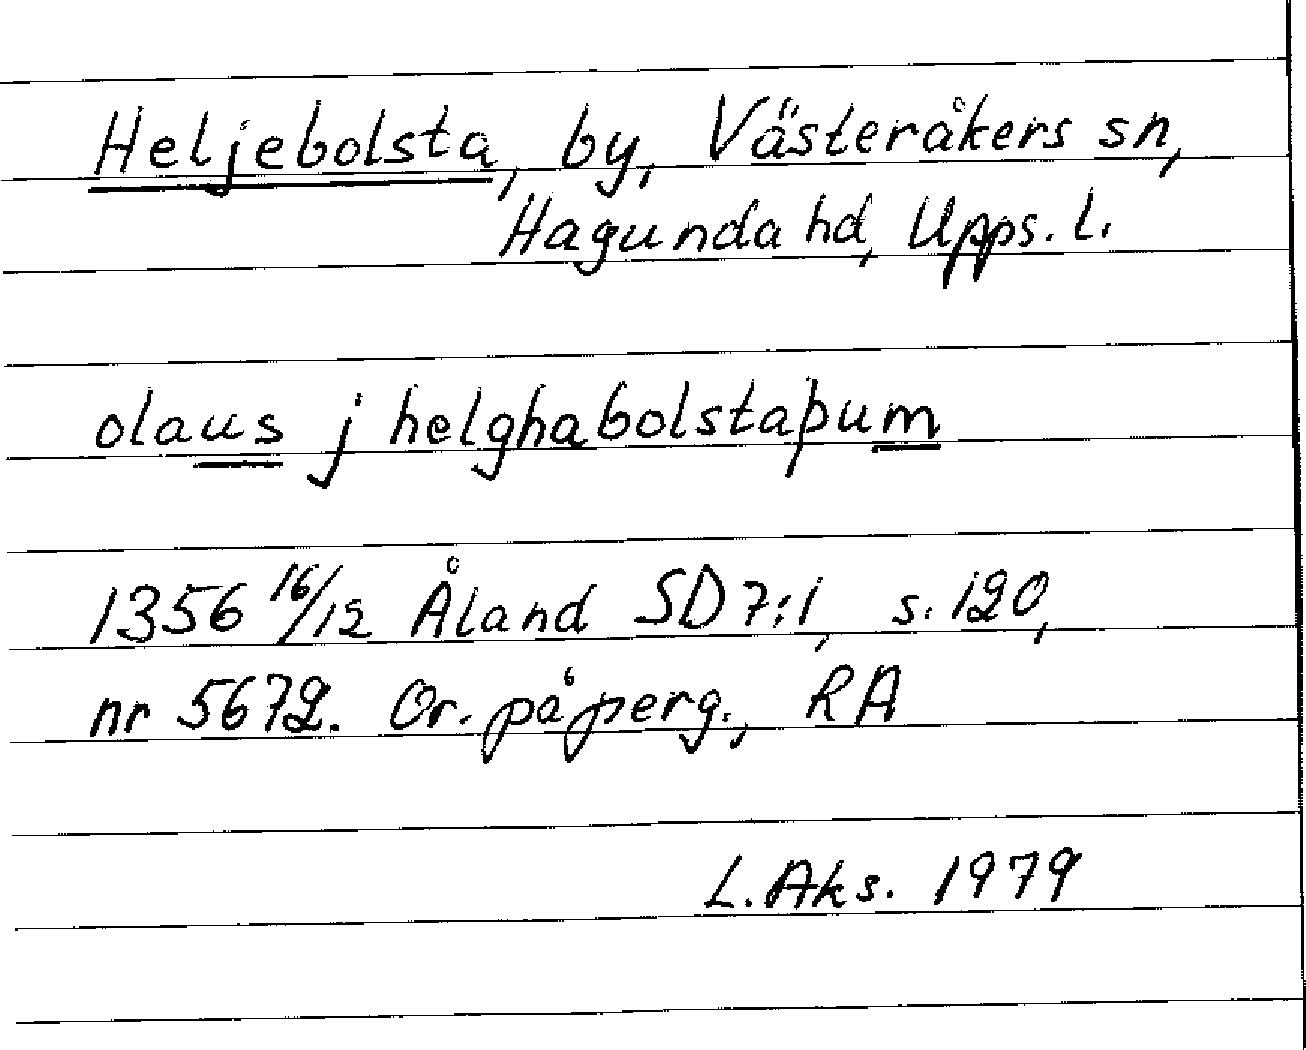 Heljebolsta, by, Västeråkers sn,
Hagunda hd, Upps. l.
olaus j helghabolstaþum
1356 16/12 Åland SD 7:1, s. 120,
nr 5672. Or. på perg., RA
L. Aks. 1979